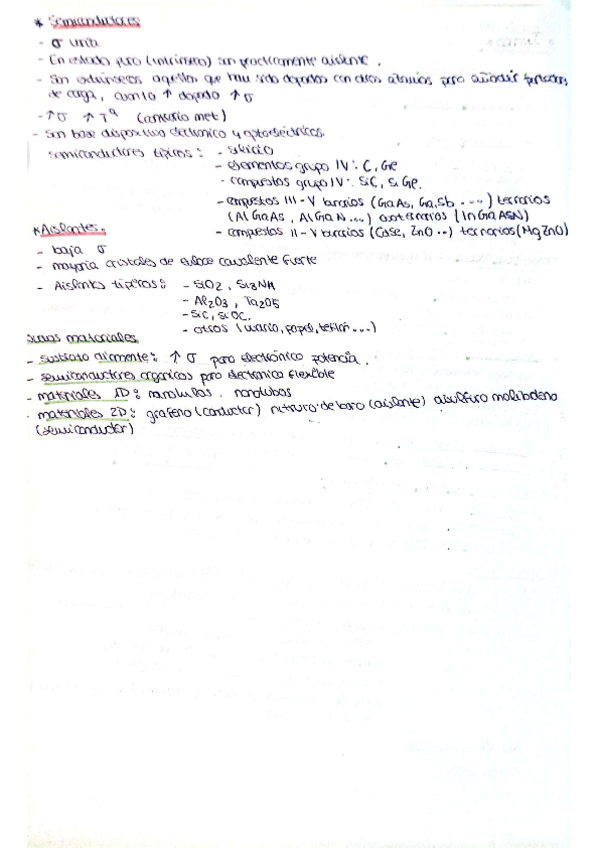 * Semiconductores
- σ unia
- En estado puro (intrínseco) son practicamente aislante.
- Son extrínsecos aquellos que han sido dopados con otros átomos para añadir portadores
de carga, cuanto ↑ dopado ↑ σ
- ↑σ ↑Tª (contrario met)
- Son base dispositivo electronico y optoelectricos.
semiconductores típicos: - silicio
- elementos grupo IV: C, Ge
- compuestos grupo IV: SiC, SiGe.
- compuestos III-V binarios (GaAs, GaSb ...) ternarios
(AlGaAs, AlGaN...) cuaternarios (InGaAsN)
- compuestos II-V binarios (CdSe, ZnO...) ternarios (MgZnO)
* Aislantes.
- baja σ
- mayoría cristales de enlace covalente fuerte
- Aislantes típicos: - SiO2, Si3N4
- Al2O3, Ta2O5
- SiC, SiOC.
- otros (vidrio, papel, teflón...)
materiales
- sustrato diamante: ↑ σ para electrónica potencia.
- semiconductores organicos para electronica flexible
- materiales 1D: nanotubos
- materiales 2D: grafeno (conductor) nitruro de boro (aislante) disulfuro molibdeno
(semiconductor)